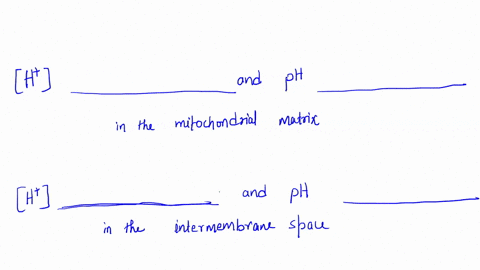 [H⁺] __________ and pH __________
in the mitochondrial matrix
[H⁺] __________ and pH __________
in the intermembrane space